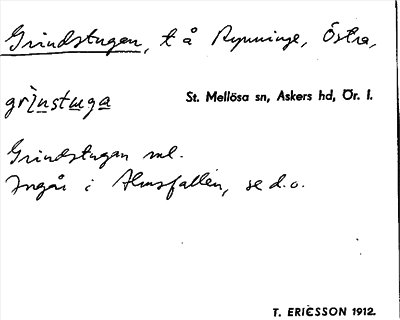 Grindstugan, t å Rynninge, Östra,
gri̇̀nstuga St. Mellösa sn, Askers hd, Ör. l.
Grindstugan ml.
Ingår i Almsfallen, se d.o.
T. ERICSSON 1912.